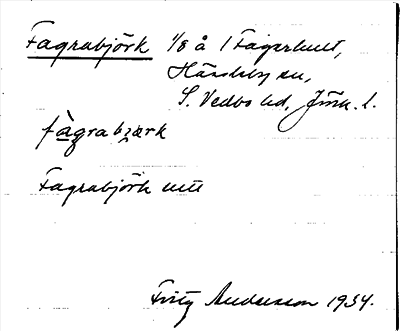 Fagrabjörk 1/8 å 1 Fagerhult,
Hässleby sn,
S. Vedbo hd, Jönk. l.
fàgrabjærk
Fagrabjörk
Fritz Andersson 1934.